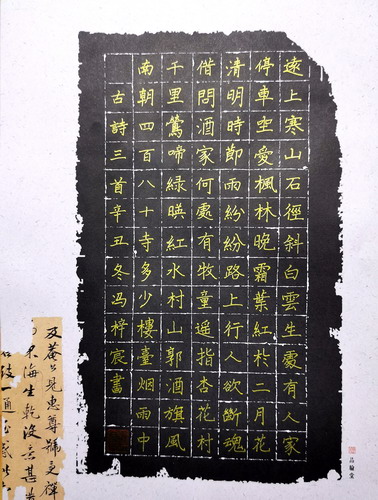 遠上寒山石徑斜白雲生處有人家
停車坐愛楓林晚霜葉紅扵二月花
清明時節雨紛紛路上行人欲斷魂
借問酒家何處有牧童遥指杏花村
千里鶯啼綠暎紅水村山郭酒旗風
南朝四百八十寺多少樓臺烟雨中
古詩三首辛丑冬冯梓宸書
品翰堂
及菴公見惠尊號之碑
東海生乾没言甚
一通